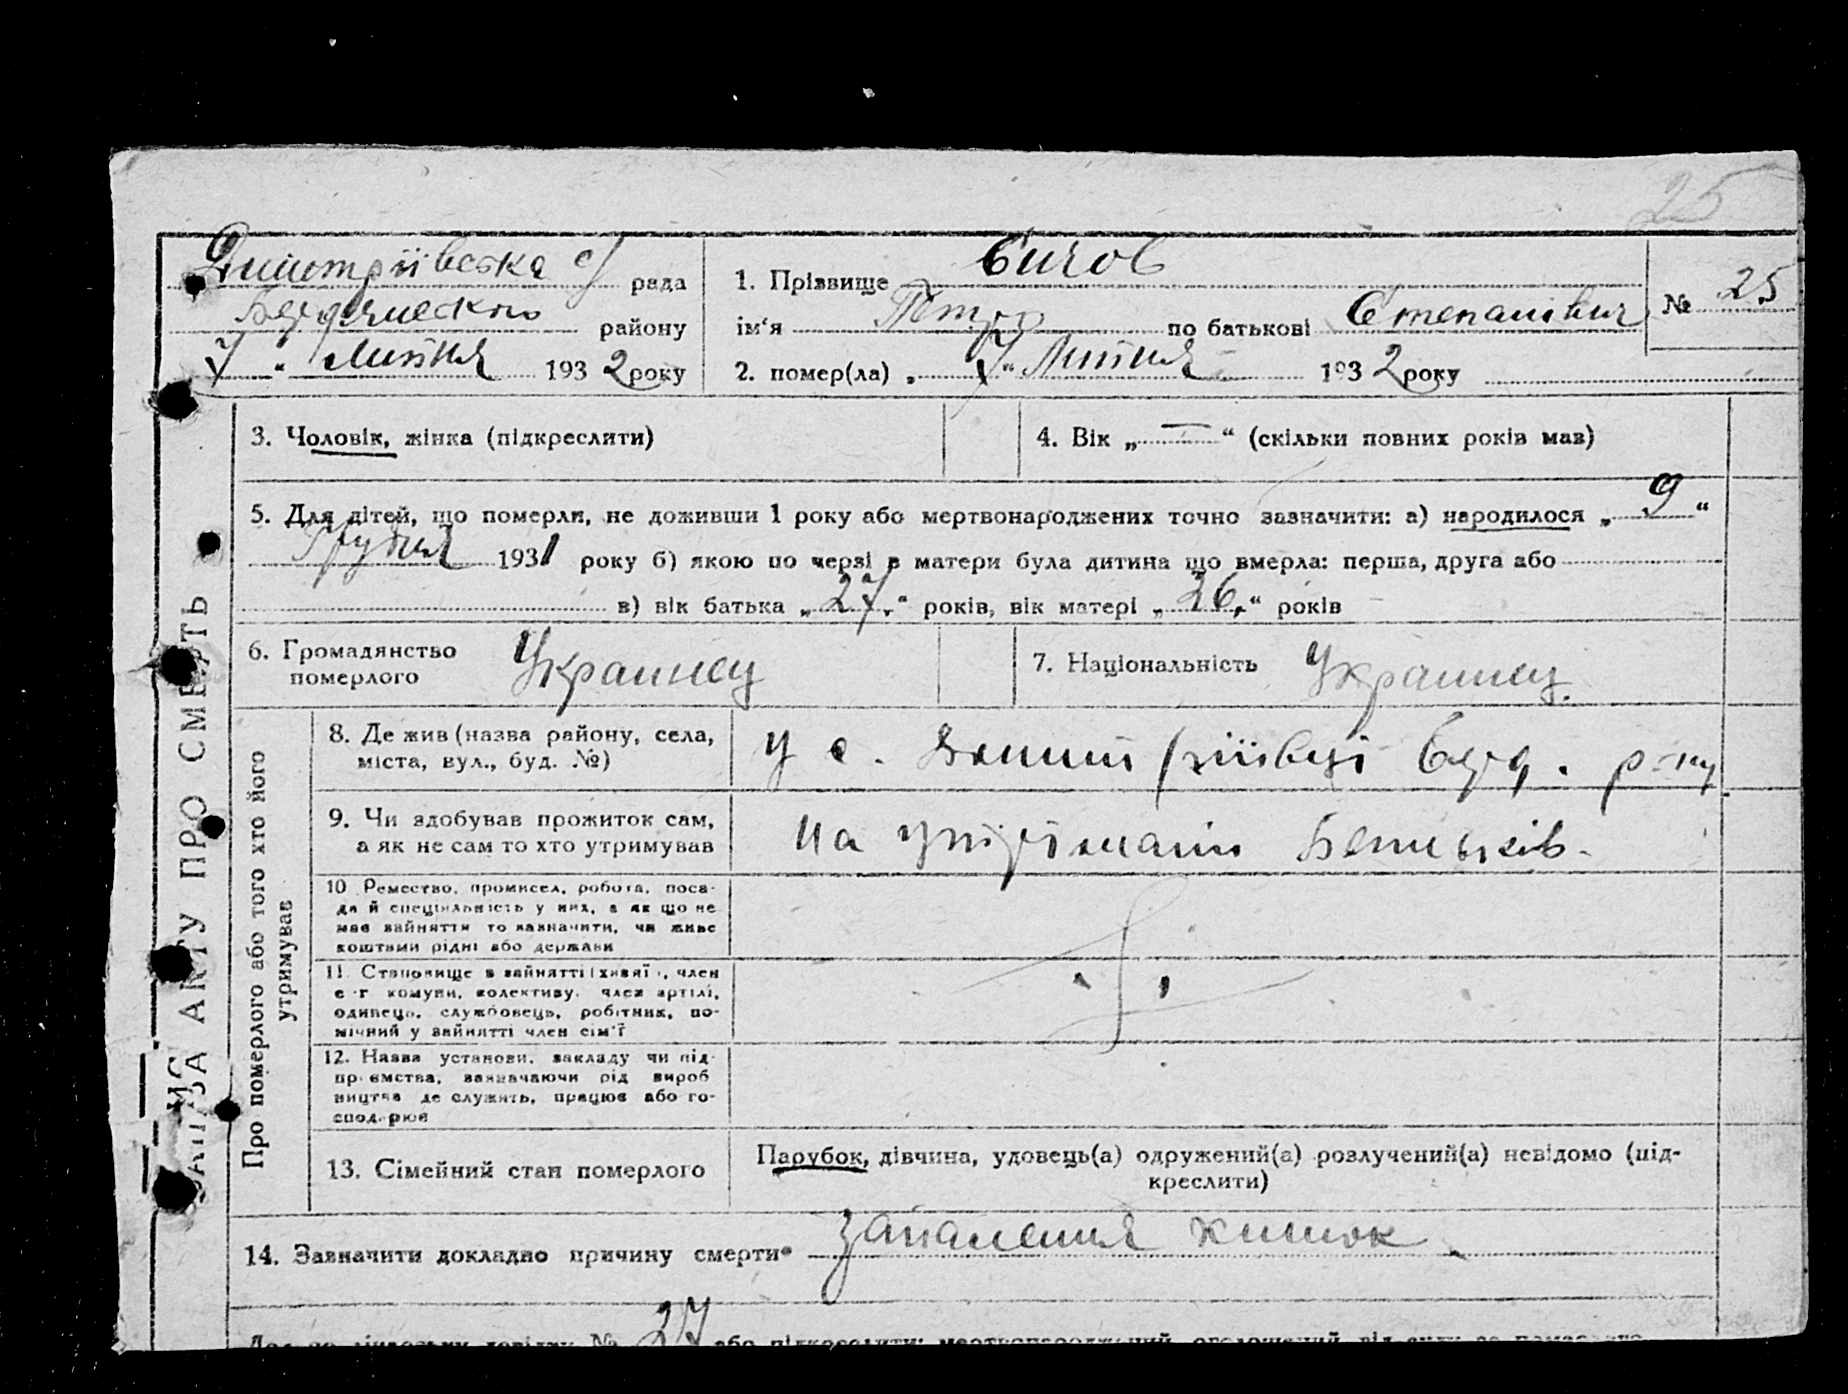 25
Дмитріївська с/ рада
Бердянського району
7 " Липня 1932 року
1. Прізвище Бичов
ім'я Петро по батькові Степанович
№ 25
2. помер(ла) „ 7 " Липня 1932 року
3. Чоловік, жінка (підкреслити)
4. Вік „ — “ (скільки повних років мав)
5. Для дітей, що померли, не доживши 1 року або мертвонароджених точно зазначити: а) народилося „ 9 “
Грудня 1931 року б) якою по черзі в матери була дитина що вмерла: перша, друга або
в) вік батька „ 27. “ років, вік матері „ 26. “ років
6. Громадянство
померлого
Украинец
7. Національність Украинец.
ЗАПИС АКТУ ПРО СМЕРТЬ
Про померлого або того хто його
утримував
8. Де жив (назва району, села,
міста, вул., буд. №)
у с. Дмитріївці Берд. р-ну
9. Чи здобував прожиток сам,
а як не сам то хто утримував
На утриманні Батьків.
10. Ремество, промисел, робота, поса-
да й спеціяльність у них, а як що не
має зайняття то зазначити, чи живе
коштами рідні або держави
11. Становище в зайнятті (хазяї, член
с-г комуни, колективу, член артілі,
одинець, службовець, робітник, по-
мічний у зайнятті член сім'ї
12. Назва установи, закладу чи під-
приємства, зазначаючи рід вироб
ництва де служить, працює або го-
сподарює
13. Сімейний стан померлого
Парубок, дівчина, удовець(а) одружений(а) розлучений(а) невідомо (під-
креслити)
14. Зазначити докладно причину смерти* Запалення кишок
№ 27 або підкреслити: мертвонароджений,